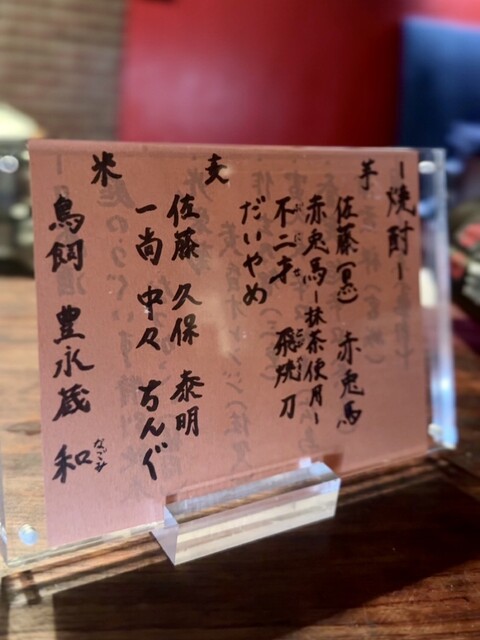 －焼酎－
芋
佐藤（黒） 赤兎馬
赤兎馬－抹茶使用－
不二才 飛焼刀
だいやめ
麦
佐藤 久保 泰明
一尚 中々 ちんぐ
米
鳥飼 豊永蔵 和
なごみ